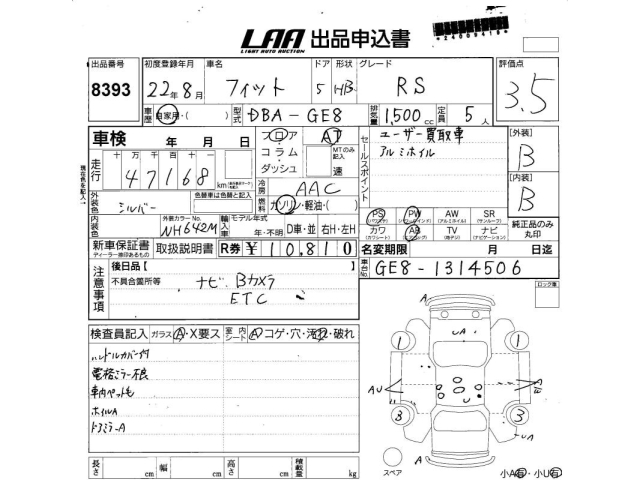 LAA 出品申込書
LIGHT AUTO AUCTION
*240009419*
出品番号 初度登録年月 車名 ドア 形状 グレード 評価点
8393 22年8月 フィット 5 HB RS 3.5
車歴 自家用・( ) 型式 DBA-GE8 排気量 1,500cc 定員 5人
車検 年 月 日 フロア AT ユーザー買取車 [外装]
走行 十万千百十 コラム MTのみ記入 アルミホイル B
47168 km ダッシュ 速 セールスポイント
現在色を記入 冷房 AAC [内装]
外装色 シルバー 色替車は色替と記入 燃料 ガソリン・軽油・( ) B
内装色 外装カラーNo. NH642M 輸入車 モデル年式 年・不明 D車・並 右H・左H
PS PW AW SR 純正品のみ丸印
(パワステ) (パワーウインド) (アルミホイル) (サンルーフ)
カワ AB TV ナビ
(カワシート) (エアバッグ) (地デジ) (ナビゲーション)
新車保証書 取扱説明書 R券 ¥10,810 名変期限 月 日迄
ディーラー捺印あるもの
車台No. GE8-1314506
注意事項 後日品【 】
不具合箇所等 ナビ Bカメラ
ETC
ロック車
検査員記入 ガラス A・X要ス 室内シート A コゲ・穴・汚れ・破れ
ハンドルカバー付
電格ミラー不良
車内ペット毛
ホイルA
ドアミラーA
A
UA
1 1
AU A
3 3
UA
A
スペア
長さ cm 幅 cm 高さ cm 積載量 kg
小A有・小U有